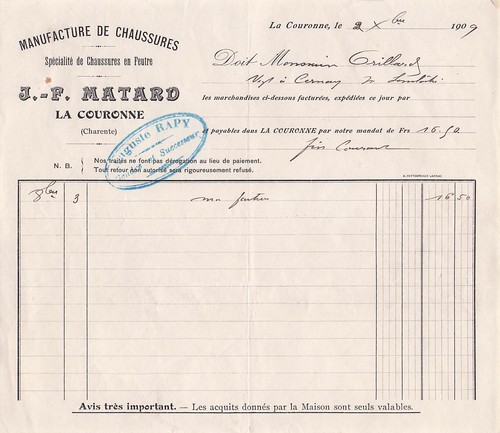 La Couronne, le 2 Xbre 1909
MANUFACTURE DE CHAUSSURES
Spécialité de Chaussures en Feutre
J.-F. MATARD
LA COURONNE
(Charente)
Doit Monsieur Trillard
à Cernay
les marchandises ci-dessous facturées, expédiées ce jour par
et payables dans LA COURONNE par notre mandat de Frs 16.50
fin Courant
Auguste RAPY
Gendre Successeur
N. B. Nos traités ne font pas dérogation au lieu de paiement.
Tout retour non autorisé sera rigoureusement refusé.
8bre 3 16 50
Avis très important. — Les acquits donnés par la Maison sont seuls valables.